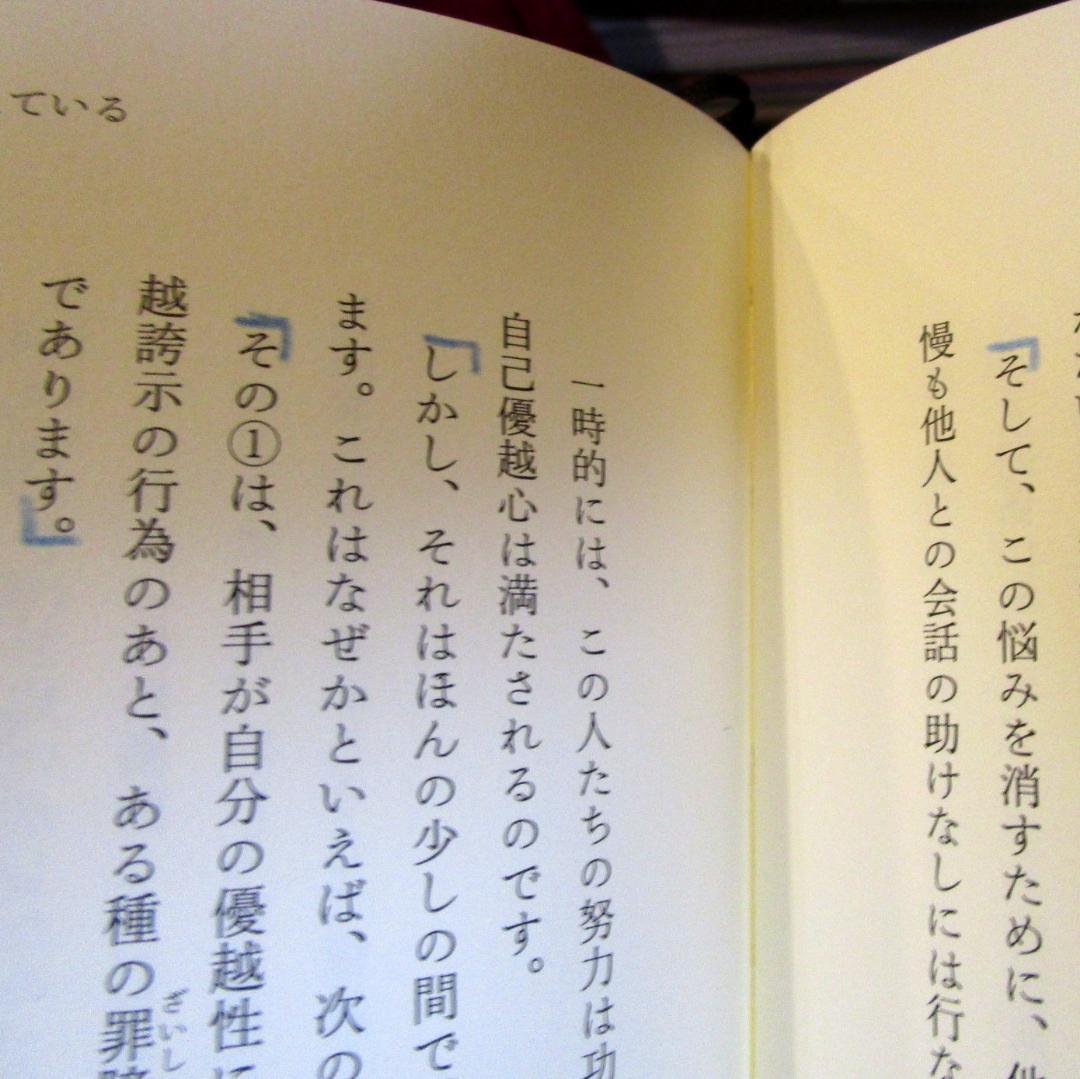 そして、この悩みを消すために、他
慢も他人との会話の助けなしには行な
一時的には、この人たちの努力は功
自己優越心は満たされるのです。
しかし、それはほんの少しの間で
ます。これはなぜかといえば、次の
その①は、相手が自分の優越性に
越誇示の行為のあと、ある種の罪
ざいし
であります。
ている